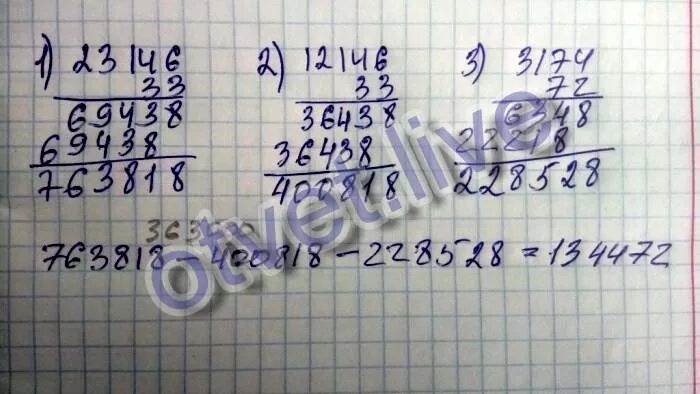 1) 23146
33
69438
69438
763818
2) 12146
33
36438
36438
400818
3) 3174
72
6348
22218
228528
363000
763818 - 400818 - 228528 = 134472
otvet.live